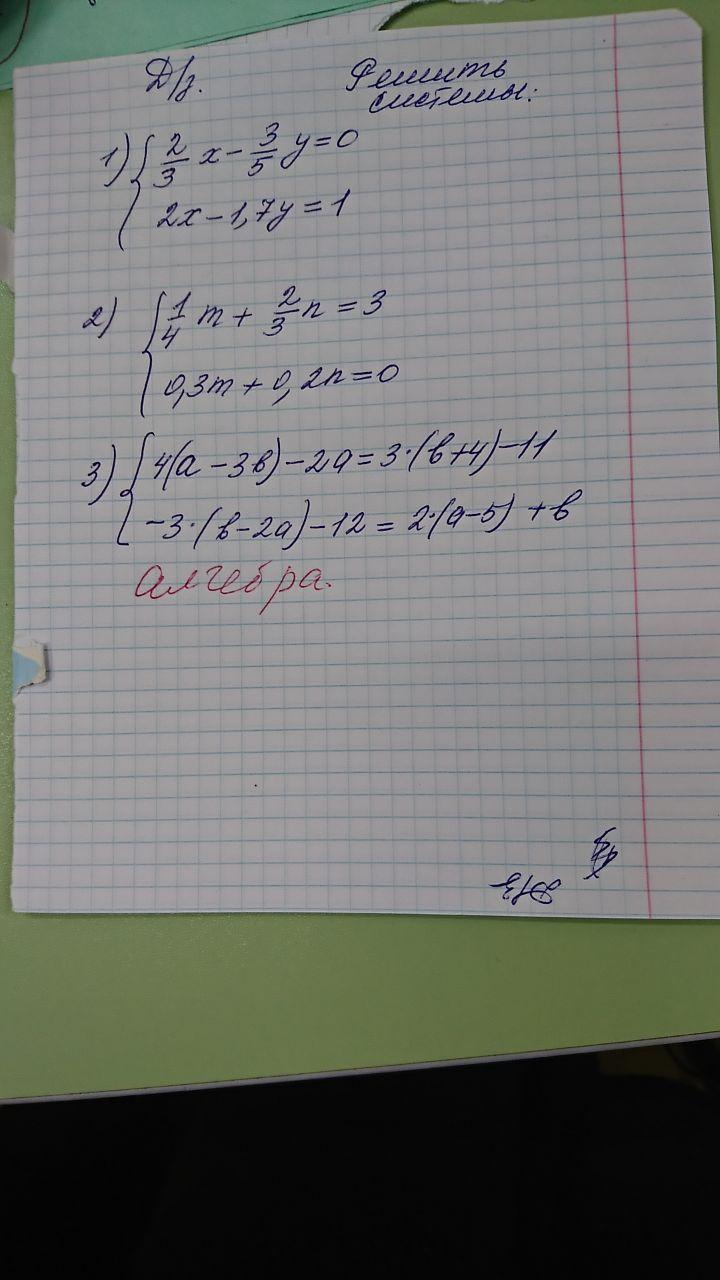 Д/з. Решить
системы:
1) { 2/3 x - 3/5 y = 0
2x - 1,7y = 1
2) { 1/4 m + 2/3 n = 3
0,3m + 0,2n = 0
3) { 4(a - 3b) - 2a = 3·(b+4) - 11
-3·(b - 2a) - 12 = 2·(a - 5) + b
Алгебра.
Д/з